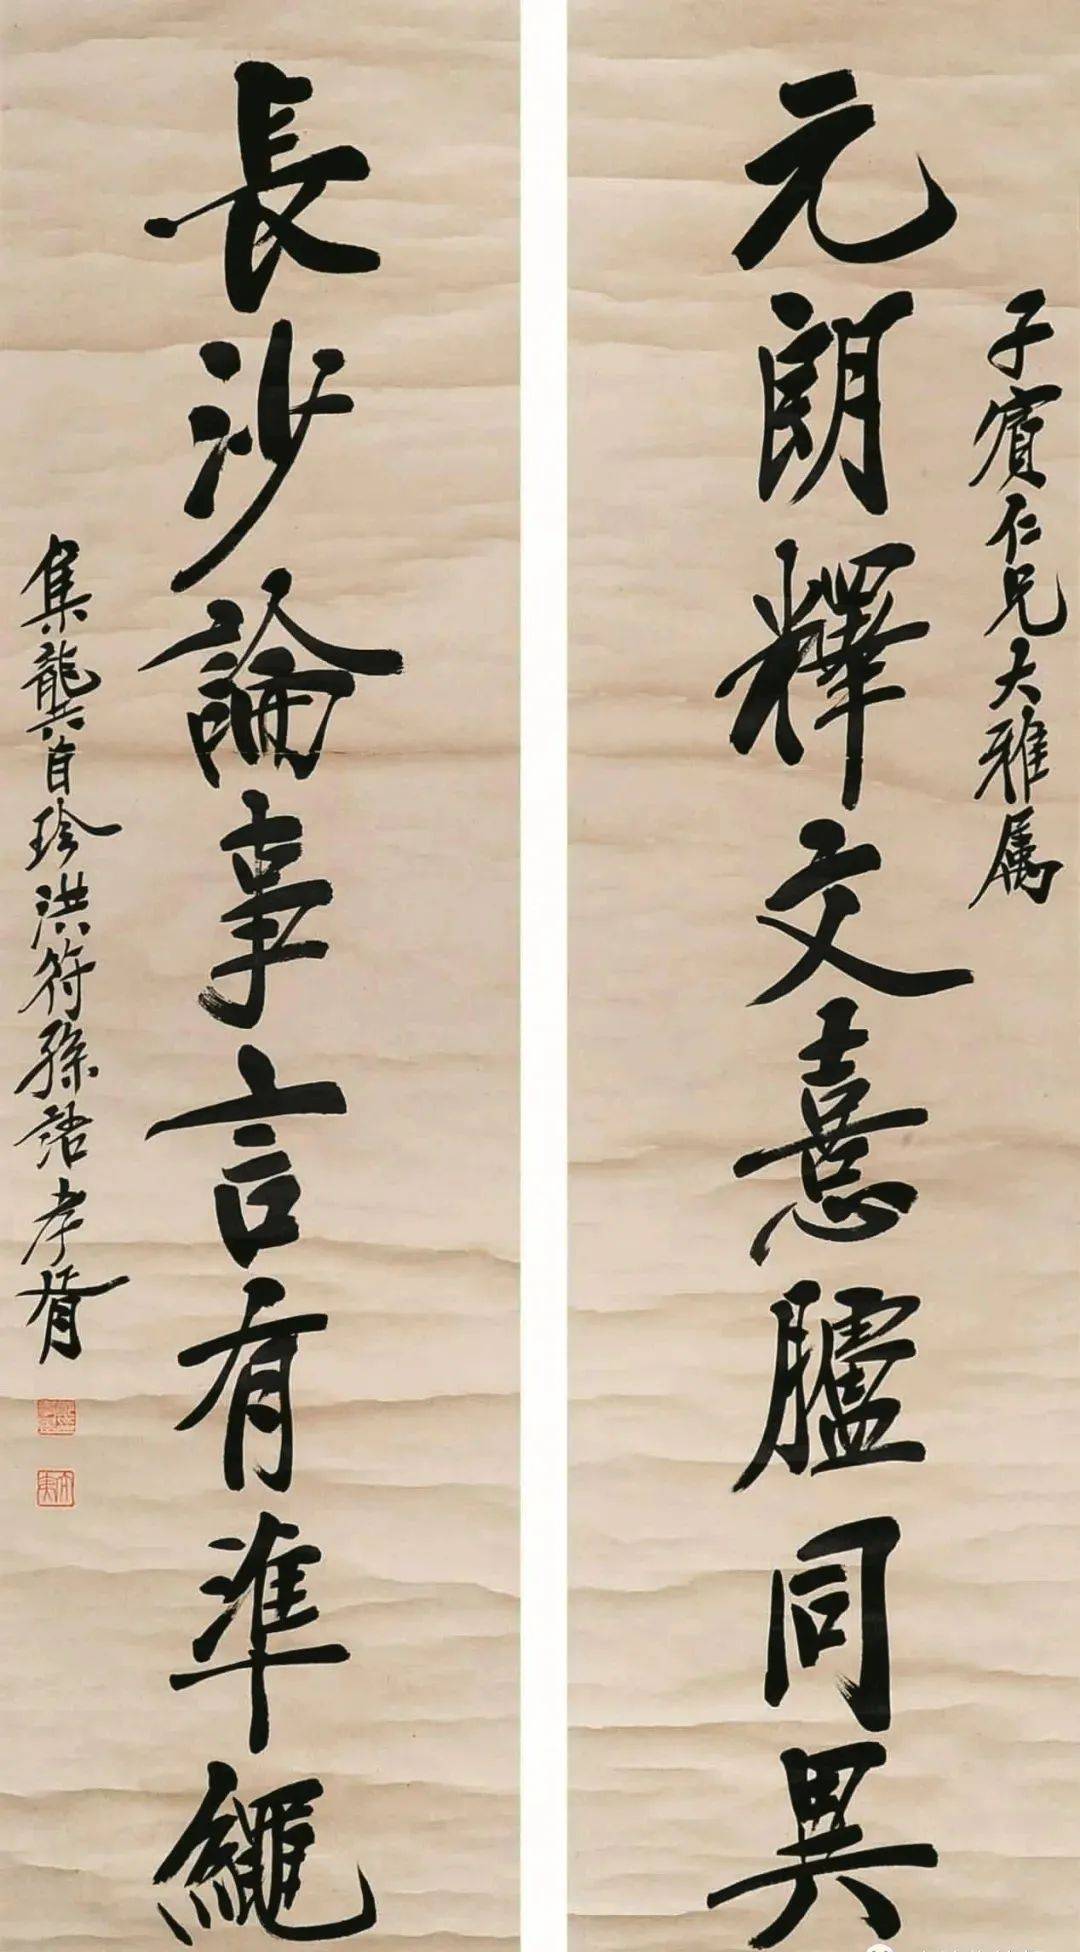 子賓仁兄大雅属
元朗釋文憙臚同異
長沙論事言有準繩
集龔自珍洪符孫語孝胥